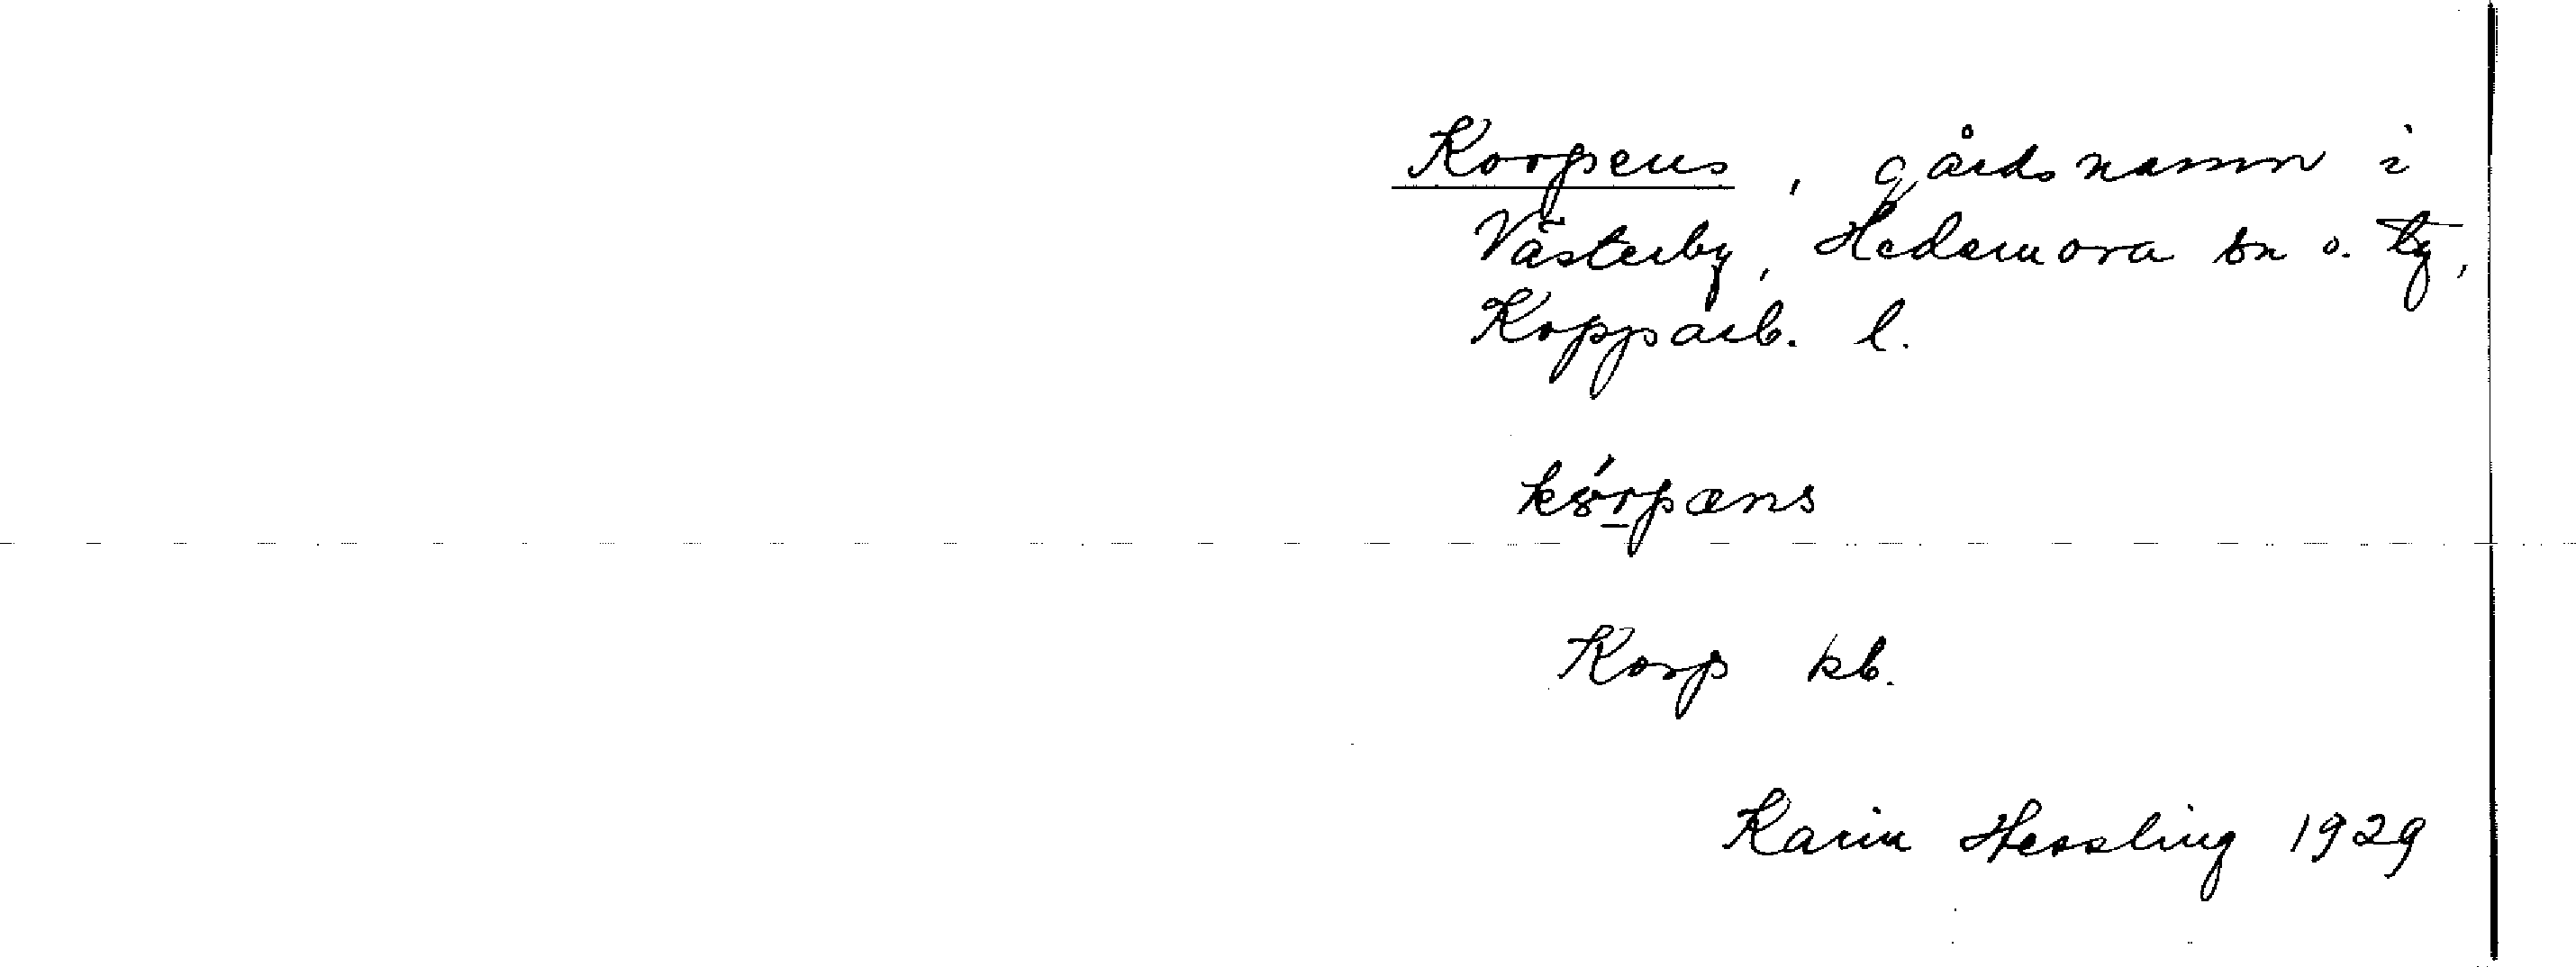 Korpens, gårdsnamn i
Västerby, Hedemora sn o. tg,
Kopparb. l.
kórpæns
Korp kb.
Karin Hessling 1929